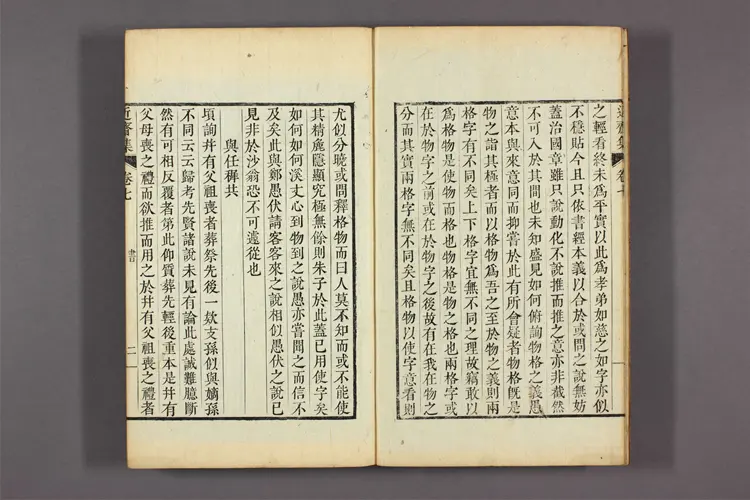 之輕看終未爲平實以此爲孝弟如慈之如字亦似
不穩貼今且只依書經本義以合於或問之說無妨
蓋治國章雖只說動化不說推而推之意亦非截然
不可入於其間也未知盛見如何俯詢物格之義愚
意本與來意同而抑嘗於此有所會疑者物格旣是
物之詣其極者而以格物爲吾之至於物之義則兩
格字有不同矣上下格字宜無不同之理故竊敢以
爲格物是使物而格也物格是物之格也兩格字或
在於物字之前或在於物字之後故有在我在物之
分而其實兩格字無不同矣且格物以使字意看則
近齋集
卷七
尤似分曉或問釋格物而曰人莫不知而或不能使
其精麁隱顯究極無餘則朱子於此蓋已用使字矣
如何如何溪丈心到物到之說愚亦嘗聞之而信不
及矣此與鄭愚伏請客客來之說相似愚伏之說已
見非於沙翁恐不可遽從也
與任穉共
頃詢幷有父祖喪者葬祭先後一款支孫似與嫡孫
不同云云歸考先賢諸說未見有論此處誠難臆斷
然有可相反覆者第此仰質葬先輕後重本是幷有
父母喪之禮而欲推而用之於幷有父祖喪之禮者
近齋集
卷七
書
二